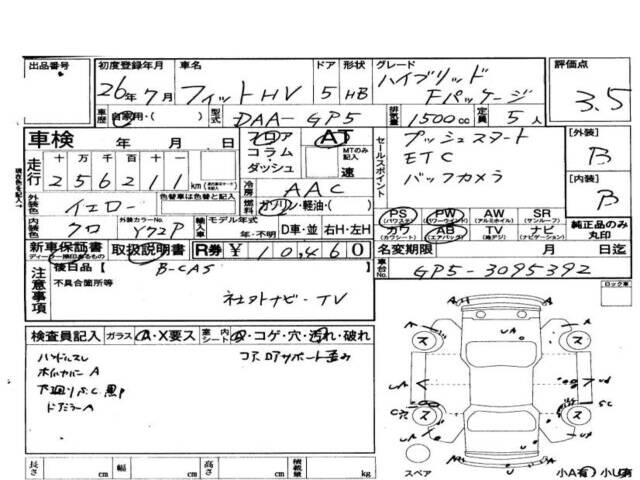 出品番号 初度登録年月 車名 ドア 形状 グレード 評価点
26年7月 フィットHV 5 HB ハイブリッド Fパッケージ 3.5
車歴 自家用・( ) 型式 DAA-GP5 排気量 1500cc 定員 5人
車検 年 月 日 フロア コラム・ダッシュ AT MTのみ記入 速
セールスポイント プッシュスタート
ETC
バックカメラ
[外装] B
[内装] B
走行 十 万 千 百 十 一
256211 km
冷房 AAC
外装色 イエロー 色替車は色替と記入 燃料 ガソリン・軽油・( )
PS (パワステ) PW (パワーウィンド) AW (アルミホイル) SR (サンルーフ) 純正品のみ丸印
カワ (カワシート) AB (エアバック) TV (地デジ) ナビ (ナビゲーション)
内装色 クロ 外装カラーNo. Y72P 輸入車 モデル年式 年・不明 D車・並 右H・左H
新車保証書 ディーラー捺印あるもの 取扱説明書 R券 ¥10,460 名変期限 月 日迄
注意事項 後日品 [ B-CAS ]
不具合箇所等
社外ナビ・TV
車台No. GP5-3095392
ロック車
検査員記入 ガラス A・X要ス 室内シート コゲ・穴・汚れ・破れ
ハンドルスレ コアロアサポート歪み
ホイルカバーA
長さ cm 幅 cm 高さ cm 積載量 kg
ス ス
ス ス
スペア 小A有 小U有